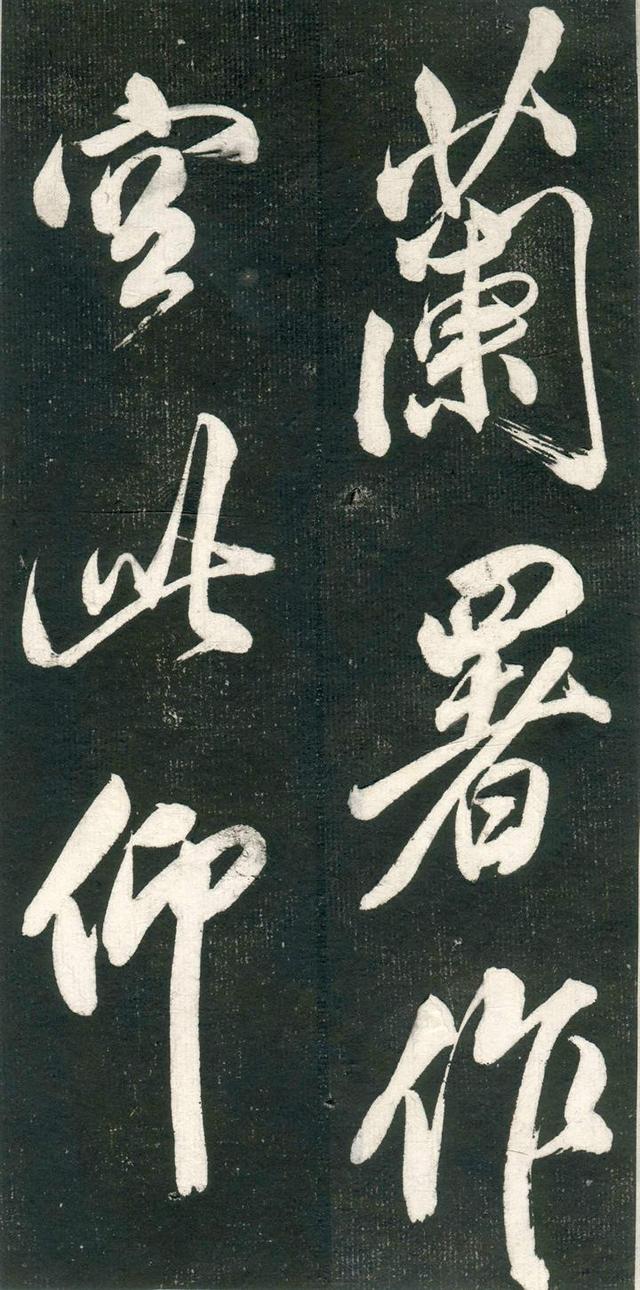 蘭署作
官此仰